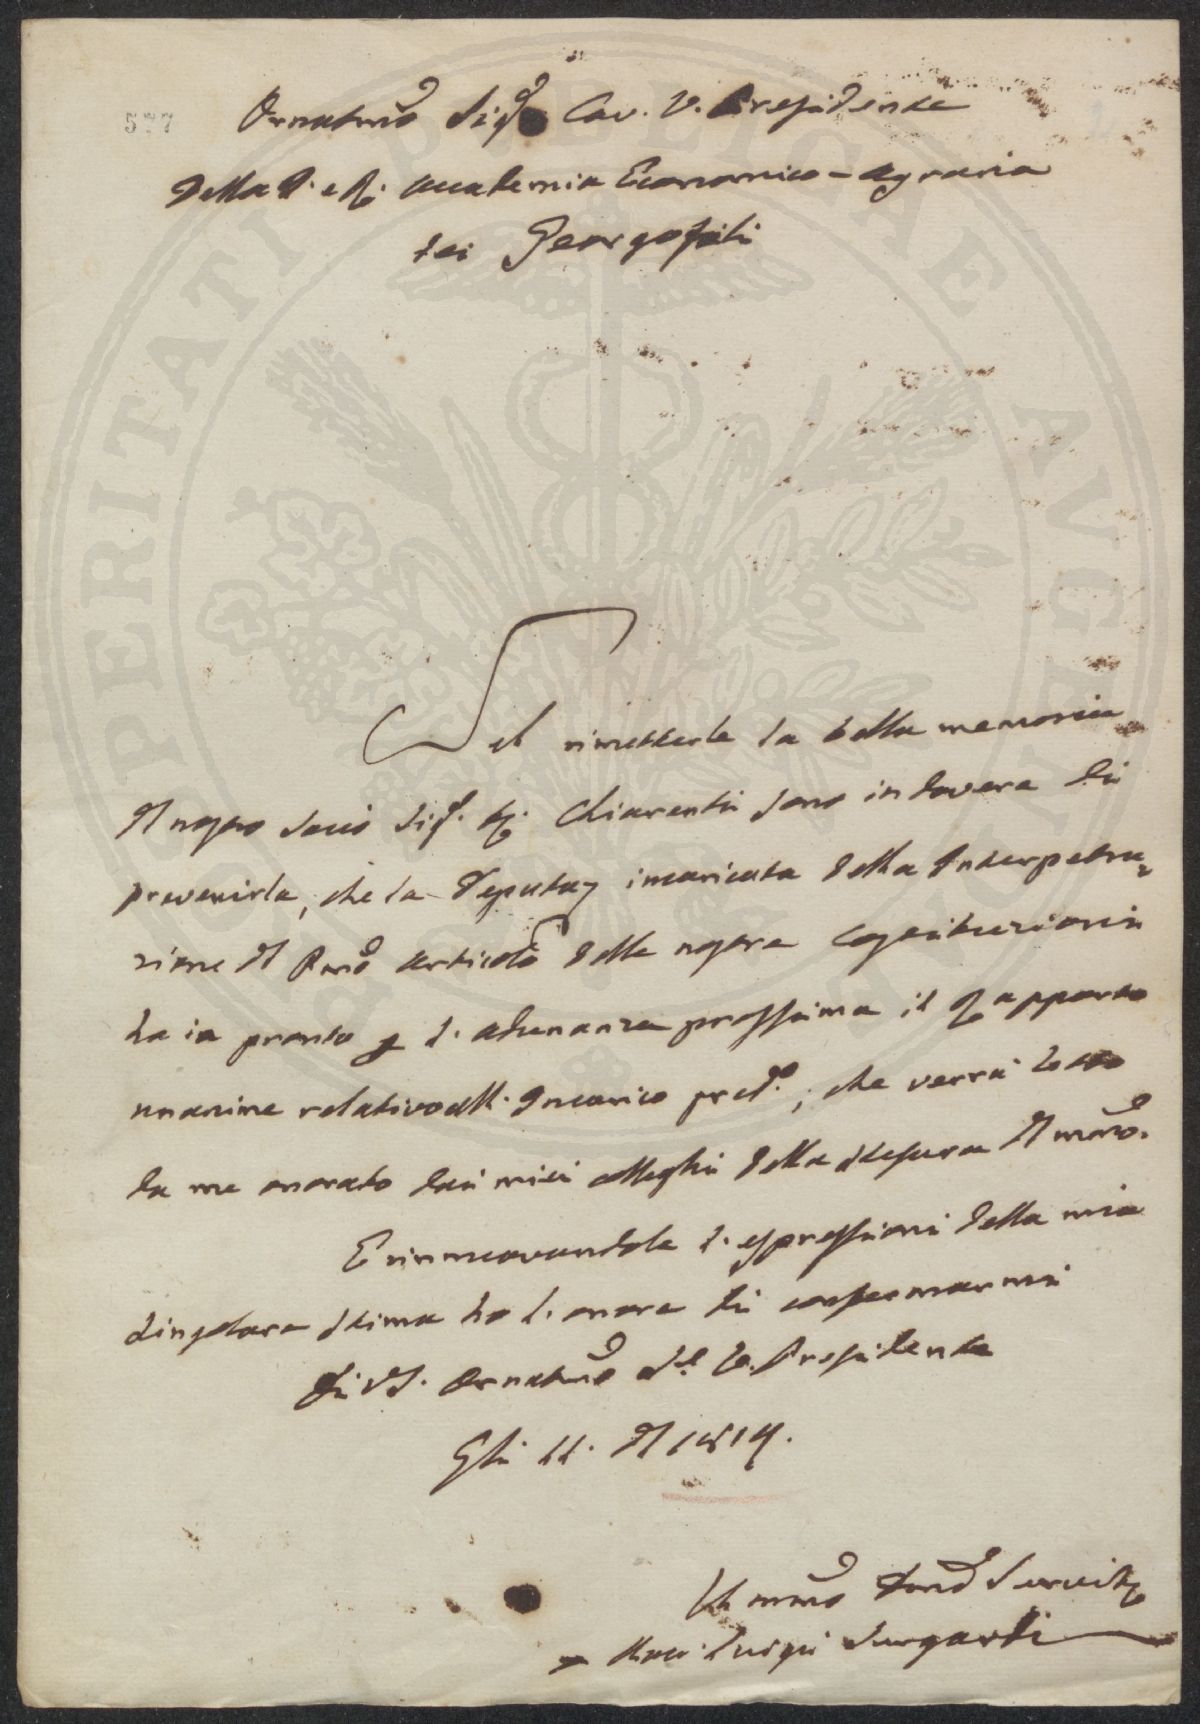 577
Ornatmo Sigr Cav. V. Presidente
della I. e R. Accademia Economico-Agraria
dei Georgofili
PROSPERITATI PUBLICAE AVGENDAE
Nel rimetterle la bella memoria
del nostro Socio Sigr. Chiarenti sono in dovere di
prevenirla, che la Deputaz incaricata della Interpetra=
zione del Pmo Articolo delle nostre Costituzioni
ha in pronto p l'adunanza prossima il Rapporto
unanime relativo all'Incarico pred.o, che verrà letto
da me onorato dai miei Colleghi della stesura del mmo.
E rinnuovandole l'espressioni della mia
singolare stima ho l'onore di confermarmi
Di VS. Ornatmo Sr. V. Presidente
Gli 11. del 1814.
Ummo Servitre
Luigi